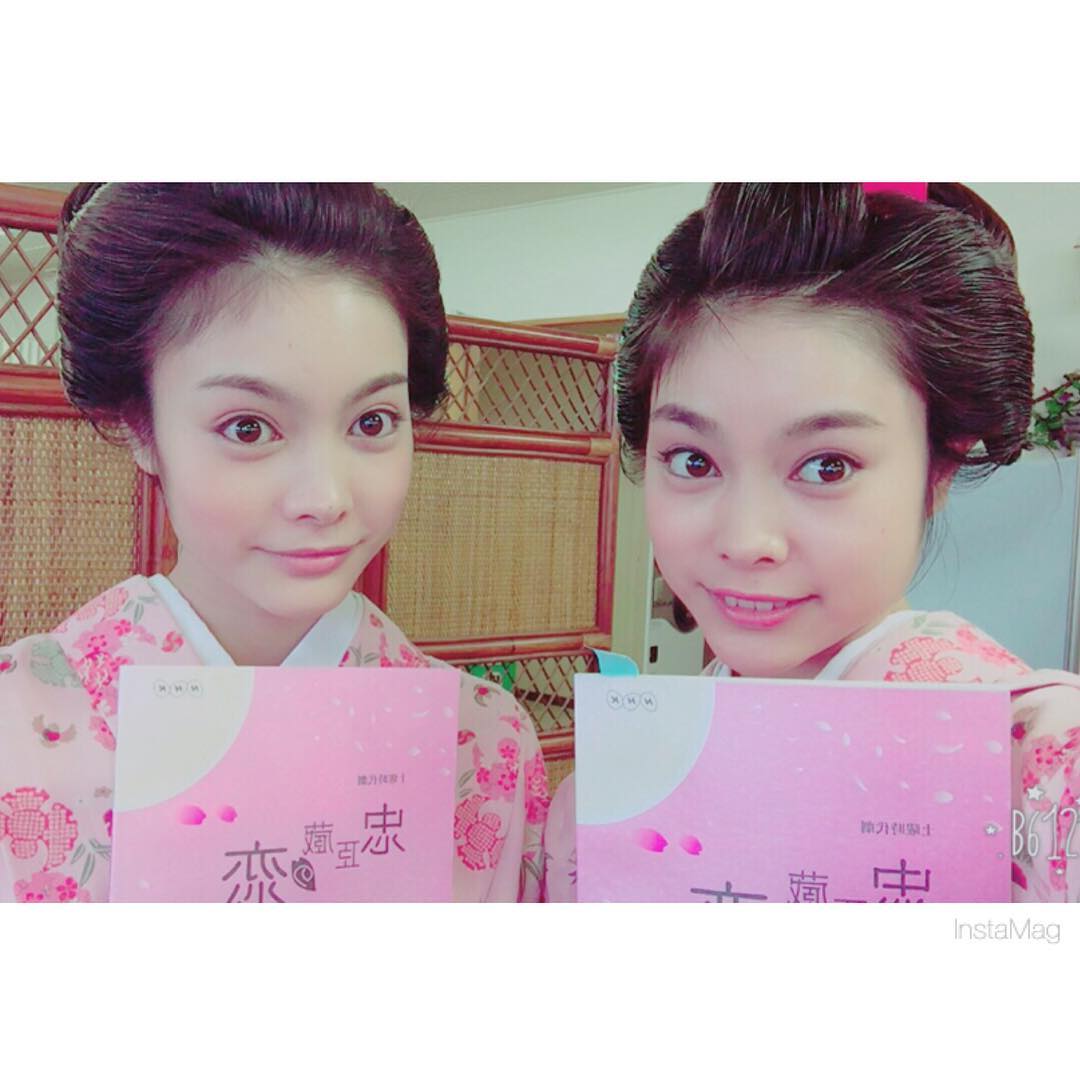 NHK
土曜時代劇
忠臣蔵
の恋
NHK
土曜時代劇
忠臣蔵
恋
B612
InstaMag